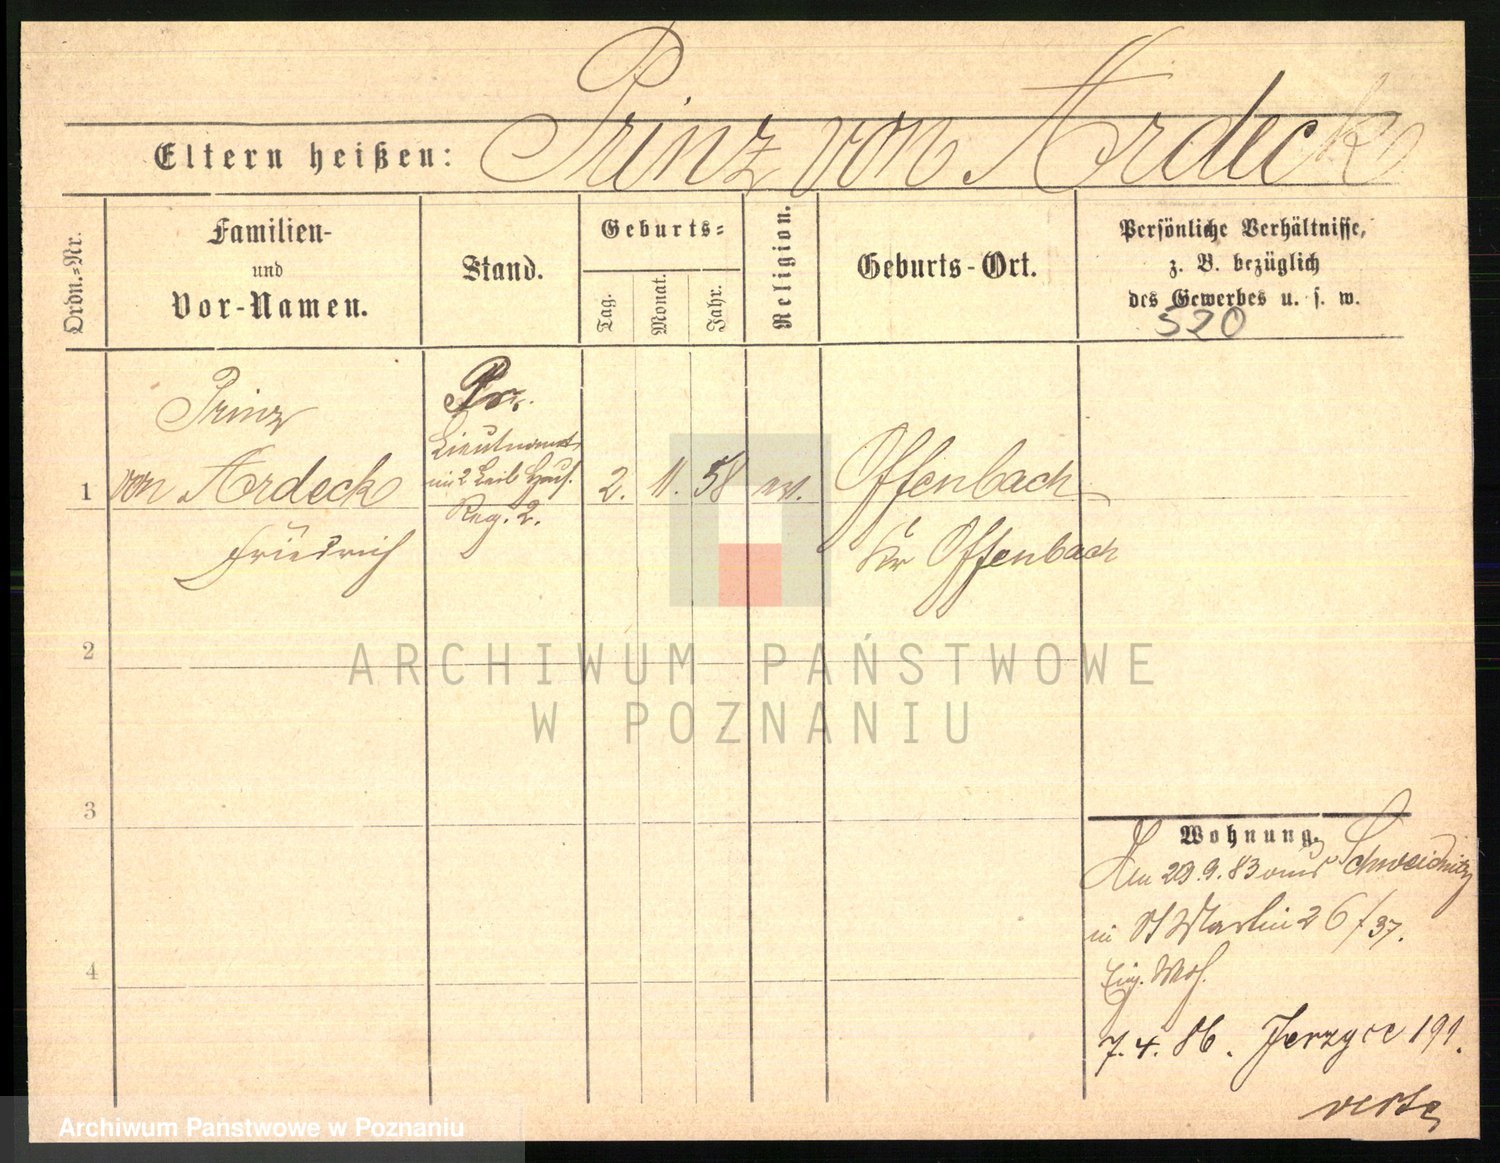 Prinz von Ardeck
Eltern heißen:
Ordn.=Nr.
Familien-
und
Vor-Namen.
Stand.
Geburts=
Tag.
Monat.
Jahr.
Religion.
Geburts-Ort.
Persönliche Verhältnisse,
z. B. bezüglich
des Gewerbes u. s. w.
520
Prinz
von Ardeck
Friedrich
Pr.
Lieutnant
im 2 Leib Hus.
Reg. 2.
1
2. 11. 58 ev.
Offenbach
Kr Offenbach
2
3
4
Wohnung.
Am 29.9.83 aus Schweidnitz
in St Martin 26/37.
Eig. Woh.
7.4.86. Jerzyce 191.
ARCHIWUM PAŃSTWOWE
W POZNANIU
Archiwum Państwowe w Poznaniu